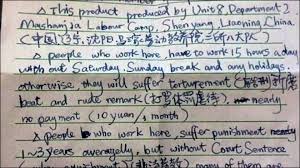 △ This product produced by Unit 8, Department 2
Mashanjia Labour Camp, Shenyang, Liaoning, China.
(中国,辽宁,沈阳,马三家劳动教养院二所八大队)
△ people who work here have to work 15 hours a day
with out Saturday, Sunday break and any holidays.
otherwise, they will suffer torturement (酷刑折磨)
beat and rude remark (打骂体罚虐待) nearly
no payment (10 yuan / 1 month)
△ People who work here, suffer punishment nearly
1~3 years averagely, but without Court Sentence